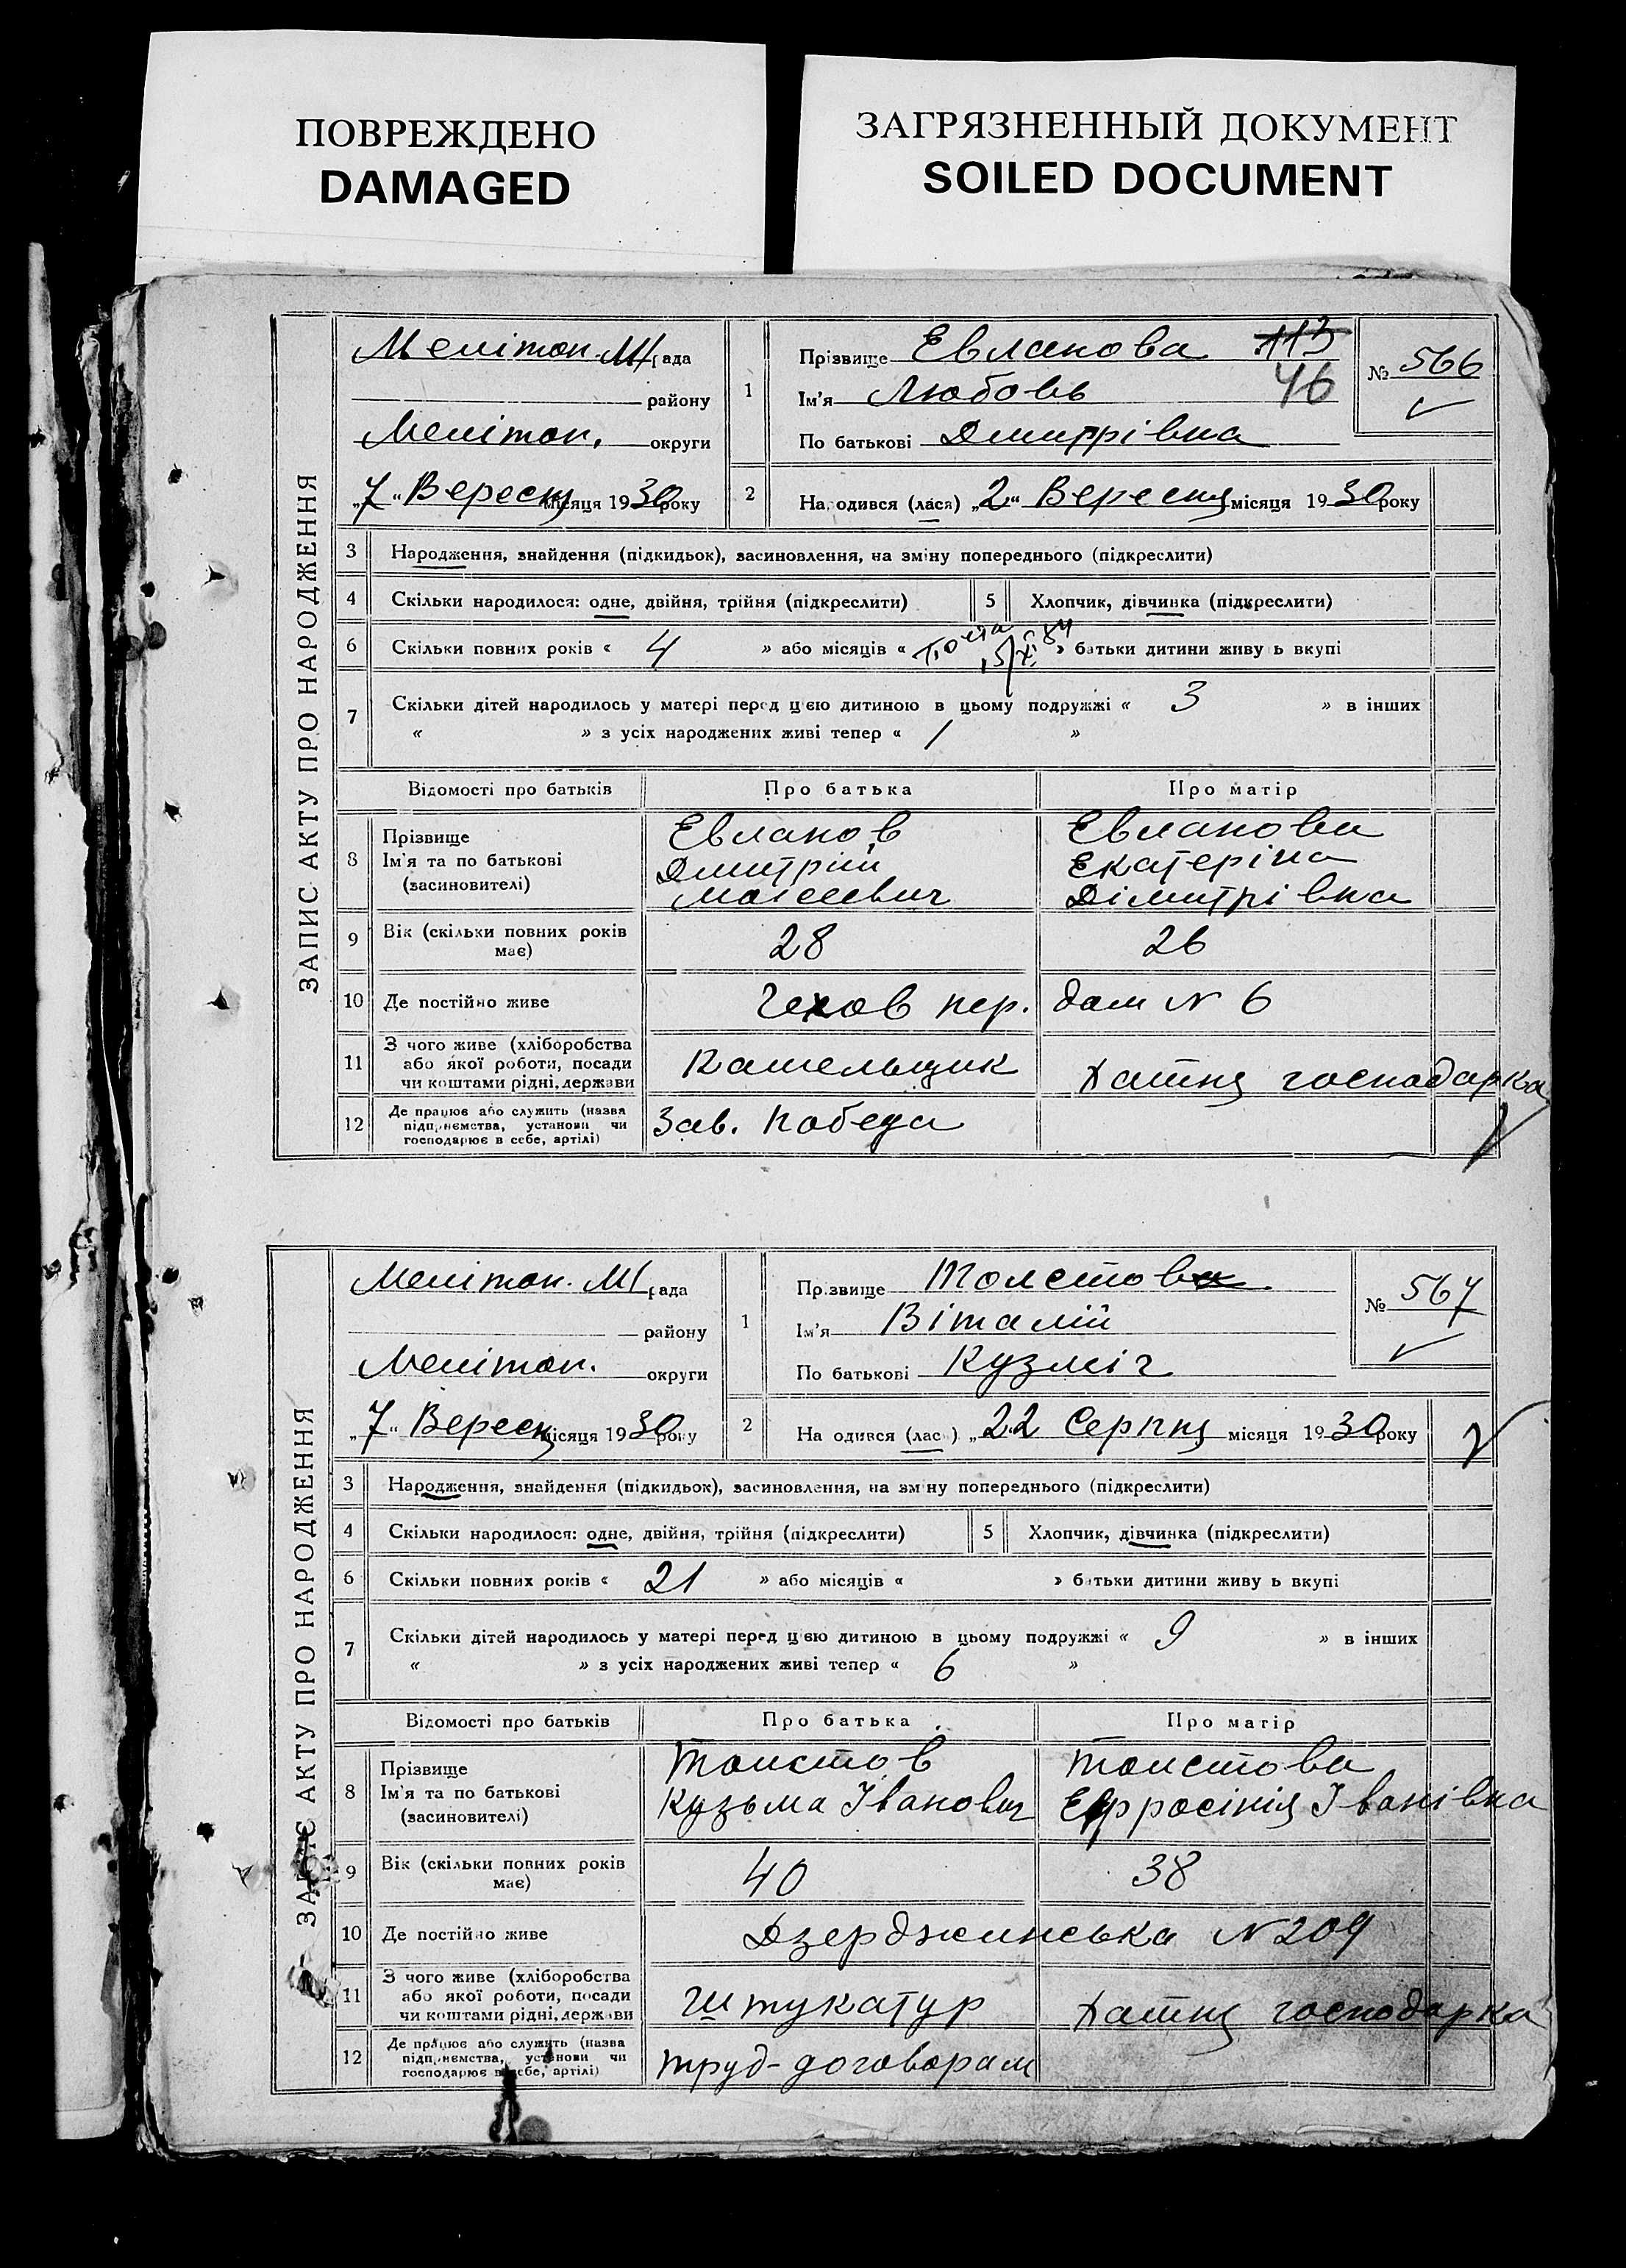 ПОВРЕЖДЕНО
DAMAGED
ЗАГРЯЗНЕННЫЙ ДОКУМЕНТ
SOILED DOCUMENT
ЗАПИС АКТУ ПРО НАРОДЖЕННЯ
Мелітоп. М/рада
району
Мелітоп. округи
„7“ Вересня місяця 1930 року
1 Прізвище Евланова 113
Ім'я Любовь 46
По батькові Дмитрівна
№ 566
2 Народився (лася) „2“ Вересня місяця 1930 року
3 Народження, знайдення (підкидьок), засиновлення, на зміну попереднього (підкреслити)
4 Скільки народилося: одне, двійня, трійня (підкреслити) 5 Хлопчик, дівчинка (підкреслити)
6 Скільки повних років « 4 » або місяців « » батьки дитини живуть вкупі
7 Скільки дітей народилось у матері перед цією дитиною в цьому подружжі « 3 » в інших
« » з усіх народжених живі тепер « 1 »
Відомості про батьків Про батька Про матір
8 Прізвище Евланов Евланова
Ім'я та по батькові Дмитрий Екатеріна
(засиновителі) Моісеевич Дімитрівна
9 Вік (скільки повних років має) 28 26
10 Де постійно живе Чехов пер. дом N 6
11 З чого живе (хліборобства
або якої роботи, посади Кательщик Хатня господарка
чи коштами рідні, держави
12 Де працює або служить (назва Зав. Победа
підприємства, установи чи
господарює в себе, артілі)
ЗАПИС АКТУ ПРО НАРОДЖЕННЯ
Мелітоп. М/рада
району
Мелітоп. округи
„7“ Вересня місяця 1930 року
1 Прізвище Толстова
Ім'я Віталій
По батькові Кузміч
№ 567
2 Народився (лася) „22 Серпня місяця 1930 року
3 Народження, знайдення (підкидьок), засиновлення, на зміну попереднього (підкреслити)
4 Скільки народилося: одне, двійня, трійня (підкреслити) 5 Хлопчик, дівчинка (підкреслити)
6 Скільки повних років « 21 » або місяців « » батьки дитини живуть вкупі
7 Скільки дітей народилось у матері перед цією дитиною в цьому подружжі « 9 » в інших
« » з усіх народжених живі тепер « 6 »
Відомості про батьків Про батька Про матір
8 Прізвище Толстов Толстова
Ім'я та по батькові Кузьма Іванович Ефросінія Іванівна
(засиновителі)
9 Вік (скільки повних років має) 40 38
10 Де постійно живе Дзерджинська N 209
11 З чого живе (хліборобства
або якої роботи, посади Штукатур Хатня господарка
чи коштами рідні, держави
12 Де працює або служить (назва
підприємства, установи чи труд-договорам
господарює в себе, артілі)